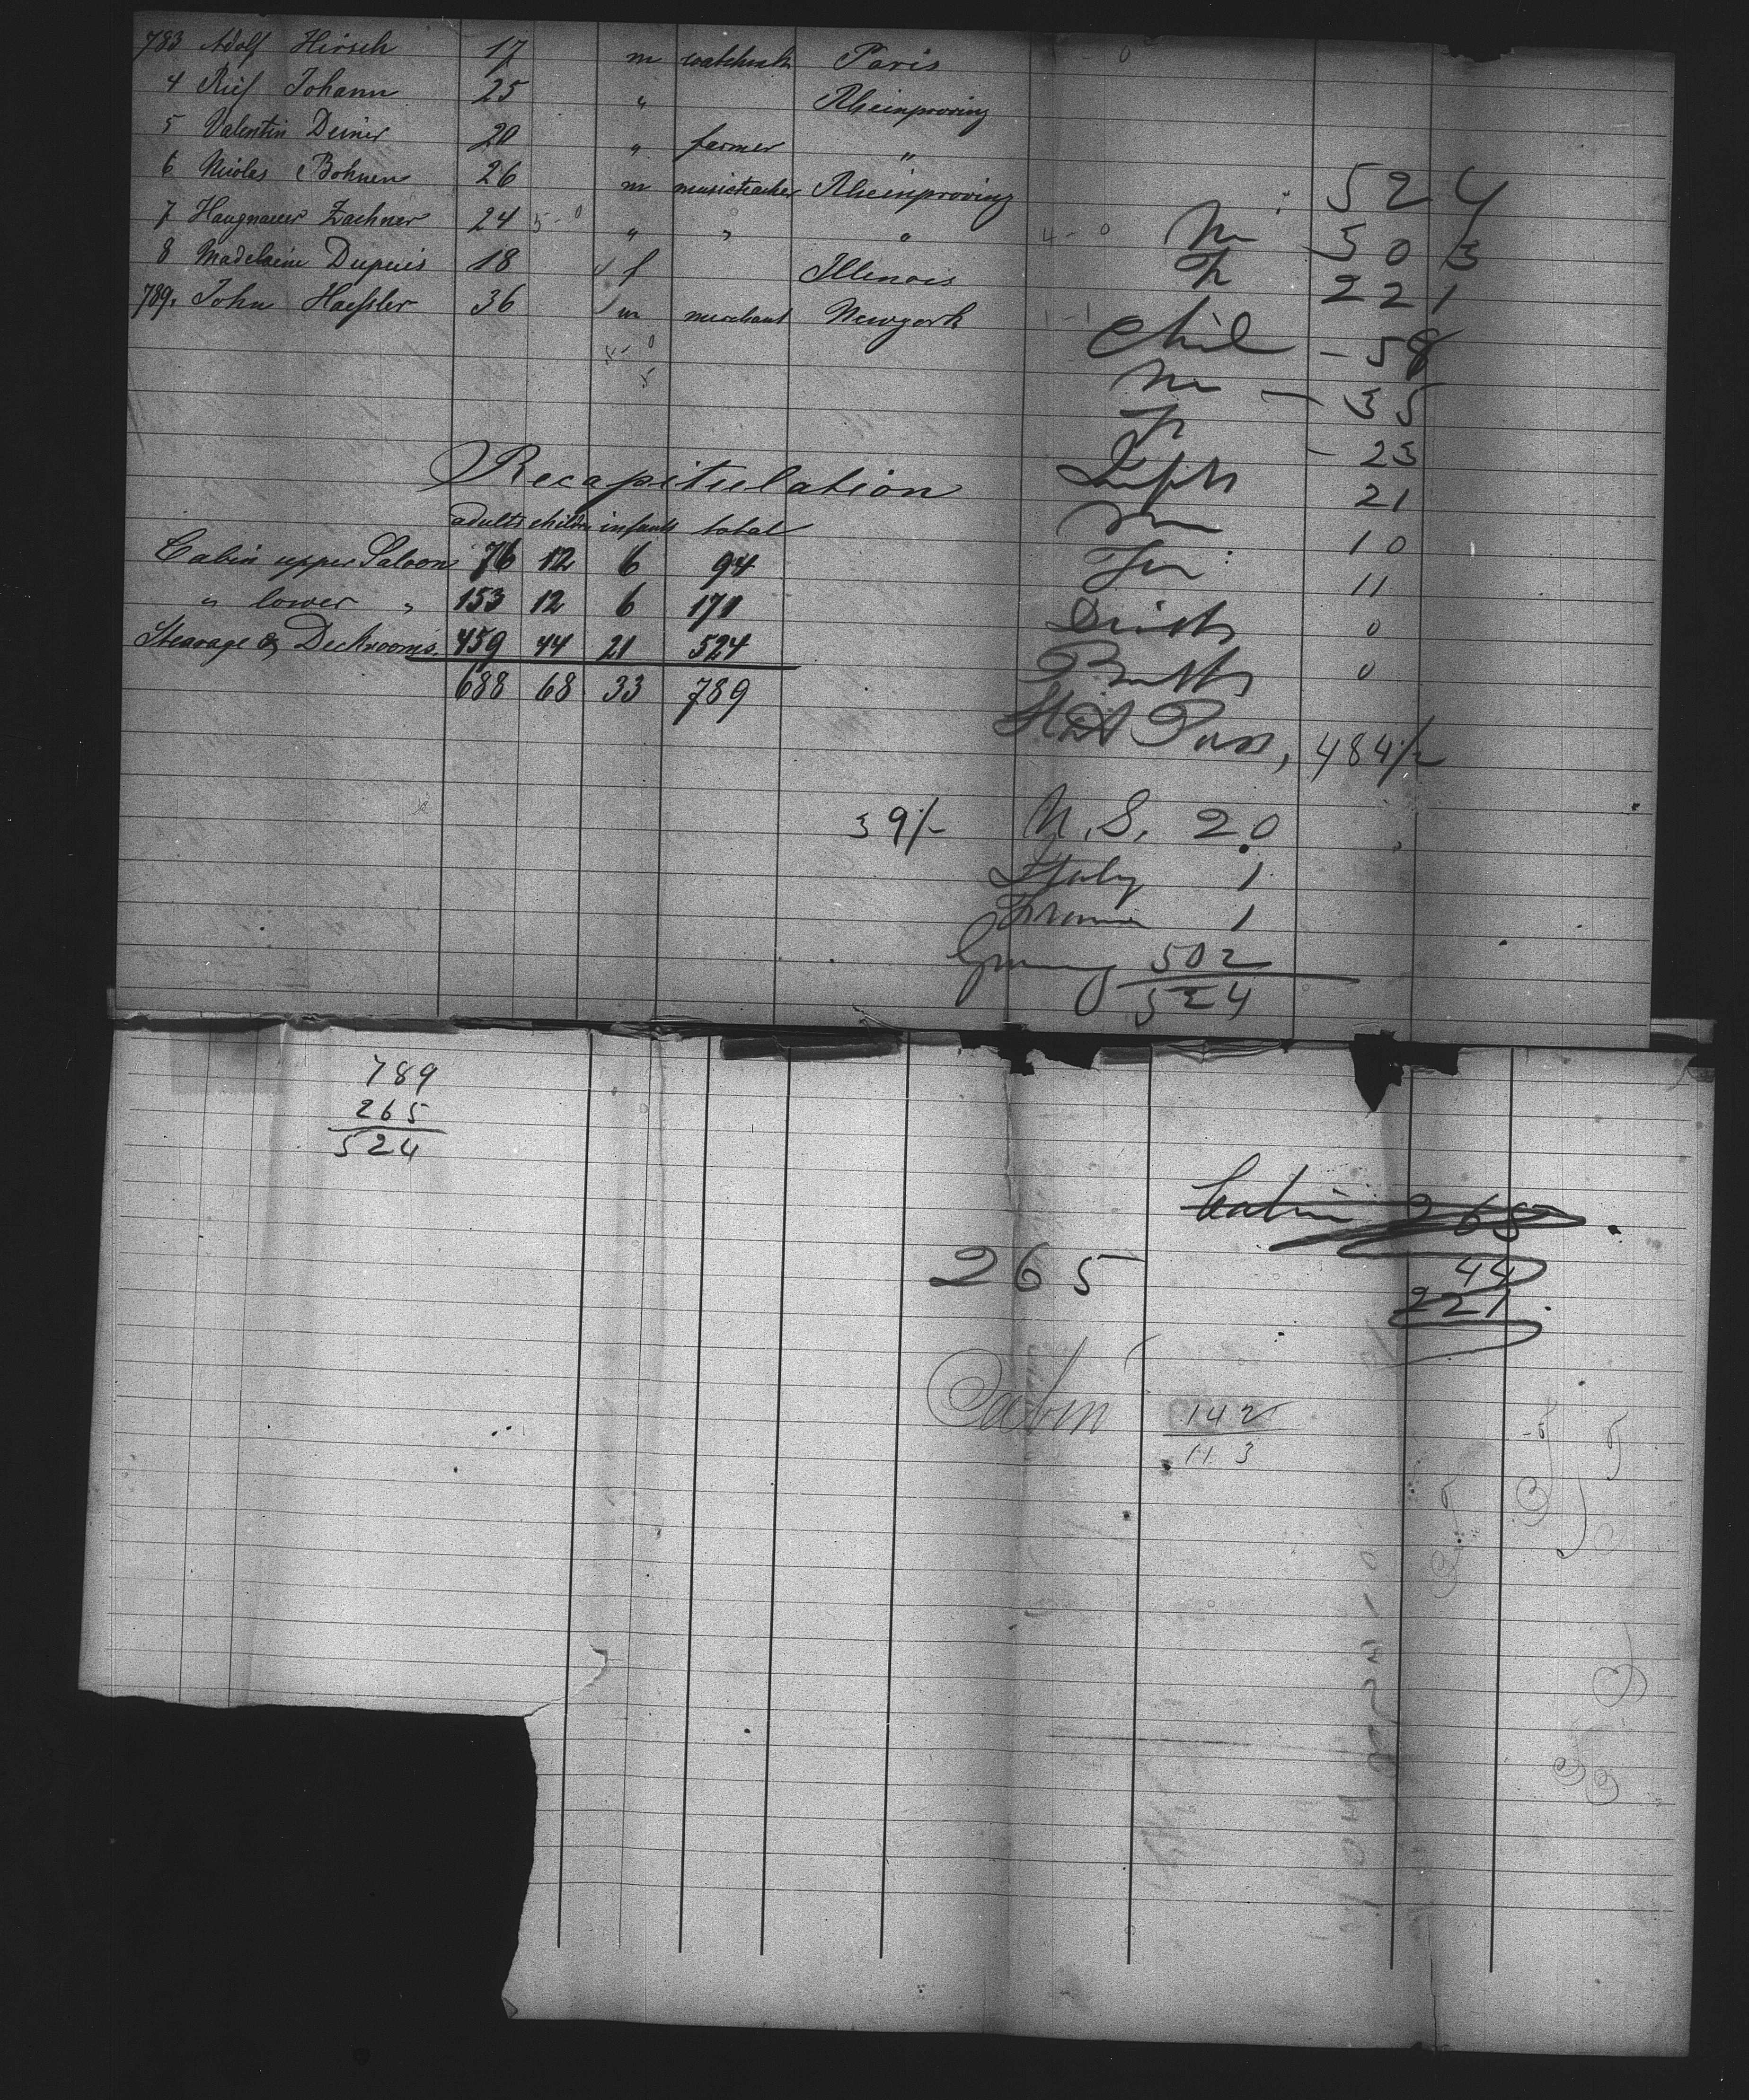 783 Adolf Hirsch 17 m watchmk Paris 0
4 Rief Johann 25 " Rheinprovinz
5 Valentin Deiner 20 " farmer "
6 Nicolas Bohnen 26 m musicteacher Rheinprovinz
7 Haugnauer Zachner 24 5-0 " " " 4-0
8 Madelaine Dupuis 18 f Illenois
789. John Haessler 36 m merchant Newyork 1-1
524
M 303
F 221
Chil - 58
M - 35
F - 23
Infts 21
M 10
Fm 11
Deaths 0
Births 0
St Pass, 484/-
Recapitulation
adults childn infants total
Cabin upper Saloon 76 12 6 94
" lower " 153 12 6 171
Stearage & Deckrooms. 459 44 21 524
688 68 33 789
39/- U.S. 20
Italy 1
France 1
Germany 502
524
789
265
524
Cabin 265
265
44
221
Cabin 142
113